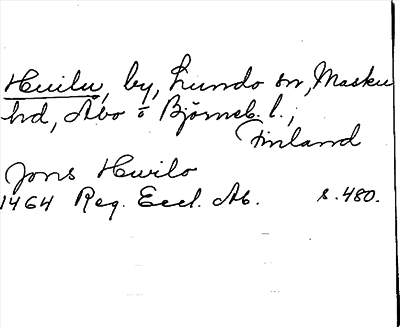 Huilu, by, Lundo sn, Masku
hd, Åbo o Björneb. l.,
Finland
Jons Hwilo
1464 Reg. Eccl. Ab. s. 480.